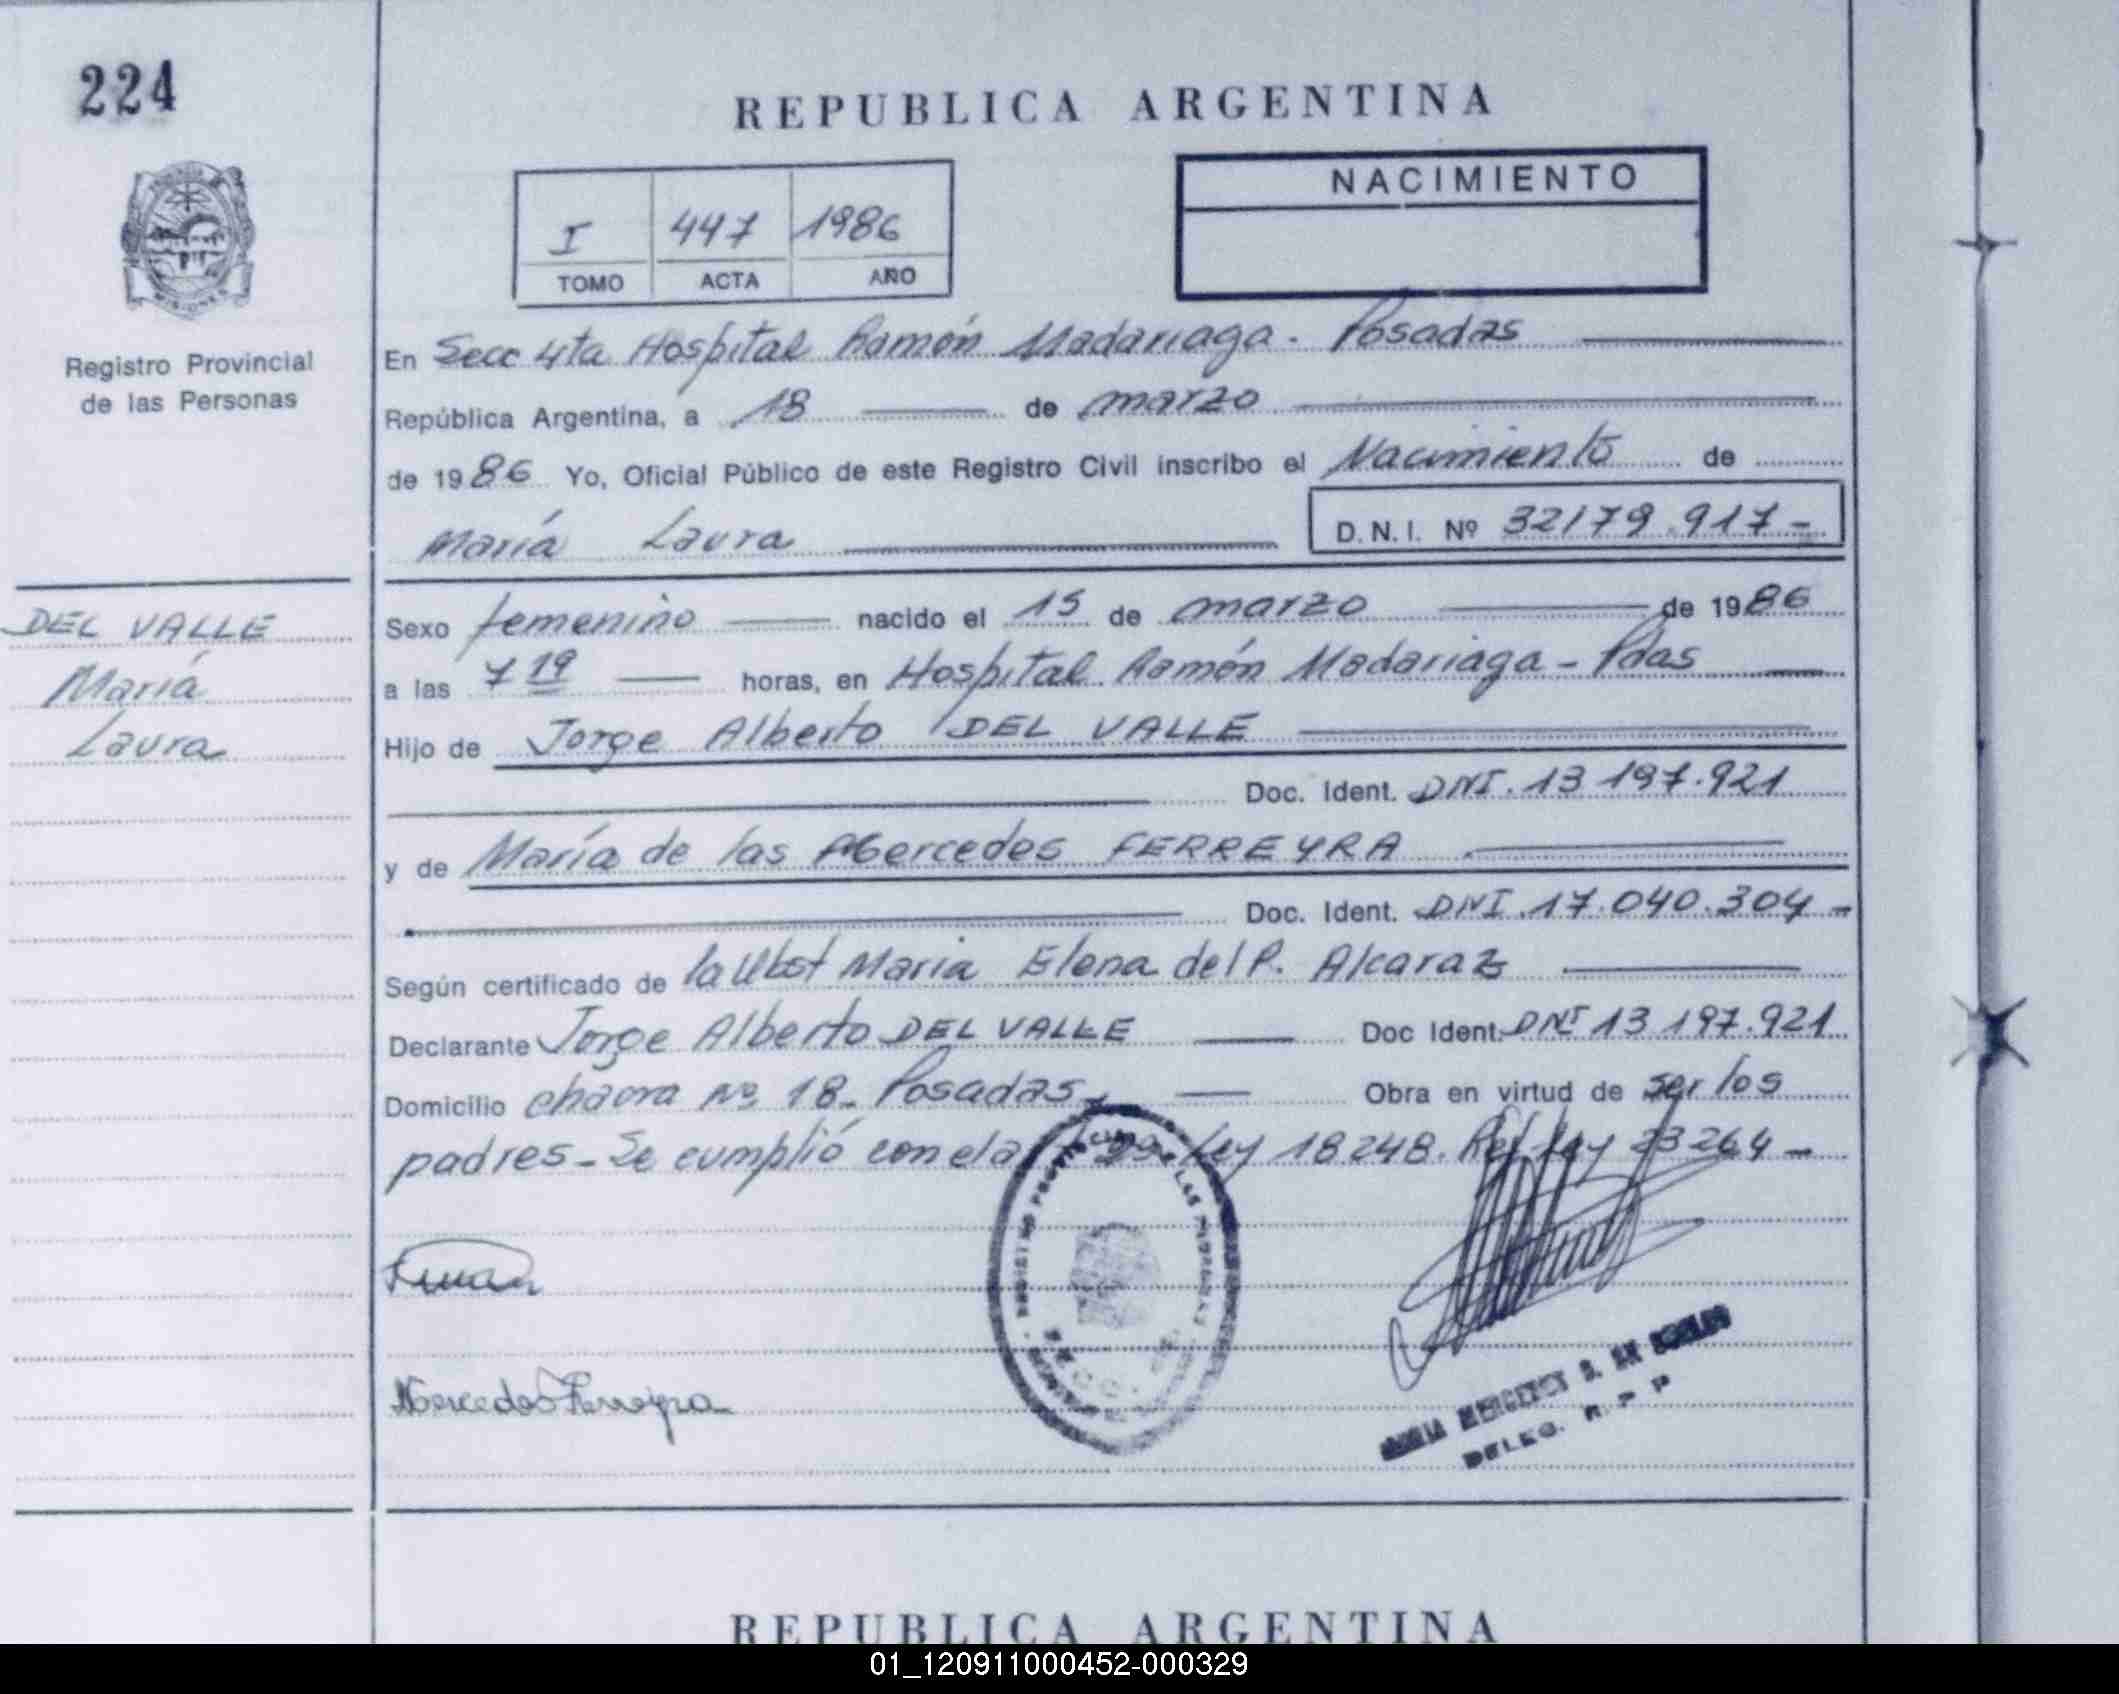 224
REPUBLICA ARGENTINA
NACIMIENTO
I 447 1986
TOMO ACTA AÑO
MISIONES
Registro Provincial
de las Personas
En Secc 4ta Hospital Ramón Madariaga - Posadas
República Argentina, a 18 de marzo
de 1986 Yo, Oficial Público de este Registro Civil inscribo el Nacimiento de
María Laura D.N.I. Nº 32179.917-
DEL VALLE
María
Laura
Sexo femenino nacido el 15 de marzo de 1986
a las 7 19 horas, en Hospital Ramón Madariaga - Pdas
Hijo de Jorge Alberto DEL VALLE
Doc. Ident. DNI. 13 197.921
y de María de las Mercedes FERREYRA
Doc. Ident. DNI. 17.040.304-
Según certificado de la Obst Maria Elena del P. Alcaraz
Declarante Jorge Alberto DEL VALLE Doc Ident. DNI 13 197.921
Domicilio chacra Nº 18. Posadas- Obra en virtud de ser los
padres - Se cumplió con el Ley 18248. Ref. Ley 23264-
Mercedes Ferreyra
DELEG. R P P
REPUBLICA ARGENTINA
01_120911000452-000329